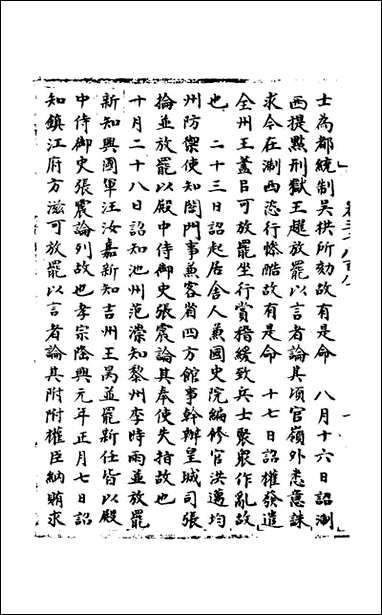 士為都統制吳拱所劾故有是命　八月十六日詔浙
西提㸃刑獄王趯放罷以言者論其頃官嶺外恚意誅
求今在浙西恣行慘酷故有是命　十七日詔權發遣
全州王蓋臣可放罷坐行賞稽緩致兵士聚衆作亂故
也　二十三日詔起居舍人兼國史院編修官洪邁均
州防禦使知閤門事兼客省四方館事幹辦皇城司張
掄並放罷以殿中侍御史張震論其奉使失持故也
十月二十八日詔知池州范漴知黎州李時雨並放罷
新知興國軍汪汝嘉新知吉州王禼並罷新任皆以殿
中侍御史張震論列故也孝宗隆興元年正月七日詔
知鎮江府方滋可放罷以言者論其附附權臣納賄求